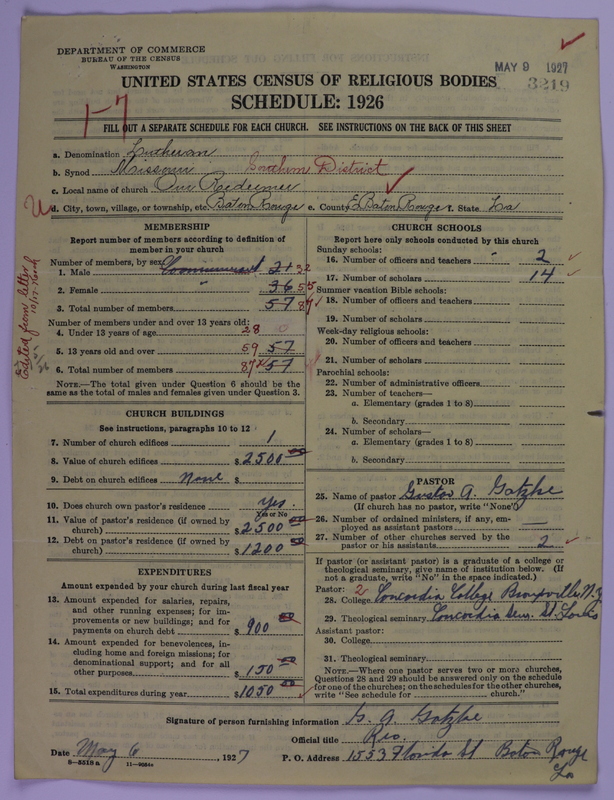 DEPARTMENT OF COMMERCE
BUREAU OF THE CENSUS
WASHINGTON
MAY 9 1927
3219
UNITED STATES CENSUS OF RELIGIOUS BODIES
SCHEDULE: 1926
1-7
FILL OUT A SEPARATE SCHEDULE FOR EACH CHURCH. SEE INSTRUCTIONS ON THE BACK OF THIS SHEET
a. Denomination Lutheran
b. Synod Missouri Southern District
c. Local name of church Our Redeemer
d. City, town, village, or township, etc. Baton Rouge e. County E. Baton Rouge f. State La
MEMBERSHIP
Report number of members according to definition of member in your church
Number of members, by sex:
1. Male Communicant 21 32
2. Female " 36 55
3. Total number of members 57 87
Number of members under and over 13 years old:
4. Under 13 years of age 28 0
5. 13 years old and over 59 57
6. Total number of members 87 57
NOTE.—The total given under Question 6 should be the same as the total of males and females given under Question 3.
Edited from letter
10/17
CHURCH BUILDINGS
See instructions, paragraphs 10 to 12
7. Number of church edifices 1
8. Value of church edifices $ 2500 00
9. Debt on church edifices None $
10. Does church own pastor's residence Yes
Yes or No
11. Value of pastor's residence (if owned by church) $ 2500 00
12. Debt on pastor's residence (if owned by church) $ 1200 00
EXPENDITURES
Amount expended by your church during last fiscal year
13. Amount expended for salaries, repairs, and other running expenses; for improvements or new buildings; and for payments on church debt $ 900 00
14. Amount expended for benevolences, including home and foreign missions; for denominational support; and for all other purposes $ 150 00
15. Total expenditures during year $ 1050 00
CHURCH SCHOOLS
Report here only schools conducted by this church
Sunday schools:
16. Number of officers and teachers 2
17. Number of scholars 14
Summer vacation Bible schools:
18. Number of officers and teachers
19. Number of scholars
Week-day religious schools:
20. Number of officers and teachers
21. Number of scholars
Parochial schools:
22. Number of administrative officers
23. Number of teachers—
a. Elementary (grades 1 to 8)
b. Secondary
24. Number of scholars—
a. Elementary (grades 1 to 8)
b. Secondary
PASTOR
25. Name of pastor Gustav A. Gotzke
(If church has no pastor, write "None")
26. Number of ordained ministers, if any, employed as assistant pastors —
27. Number of other churches served by the pastor or his assistants 2
If pastor (or assistant pastor) is a graduate of a college or theological seminary, give name of institution below. (If not a graduate, write "No" in the space indicated.)
Pastor: 2
28. College Concordia College Bronxville N.Y.
29. Theological seminary Concordia Sem. St. Louis
Assistant pastor:
30. College
31. Theological seminary
NOTE.—Where one pastor serves two or more churches, Questions 28 and 29 should be answered only on the schedule for one of the churches; on the schedules for the other churches, write "See schedule for church."
Signature of person furnishing information G. A. Gotzke
Official title Rev.
Date May 6, 1927 P. O. Address 1553 Florida St Baton Rouge La
8—5518 a 11—9084